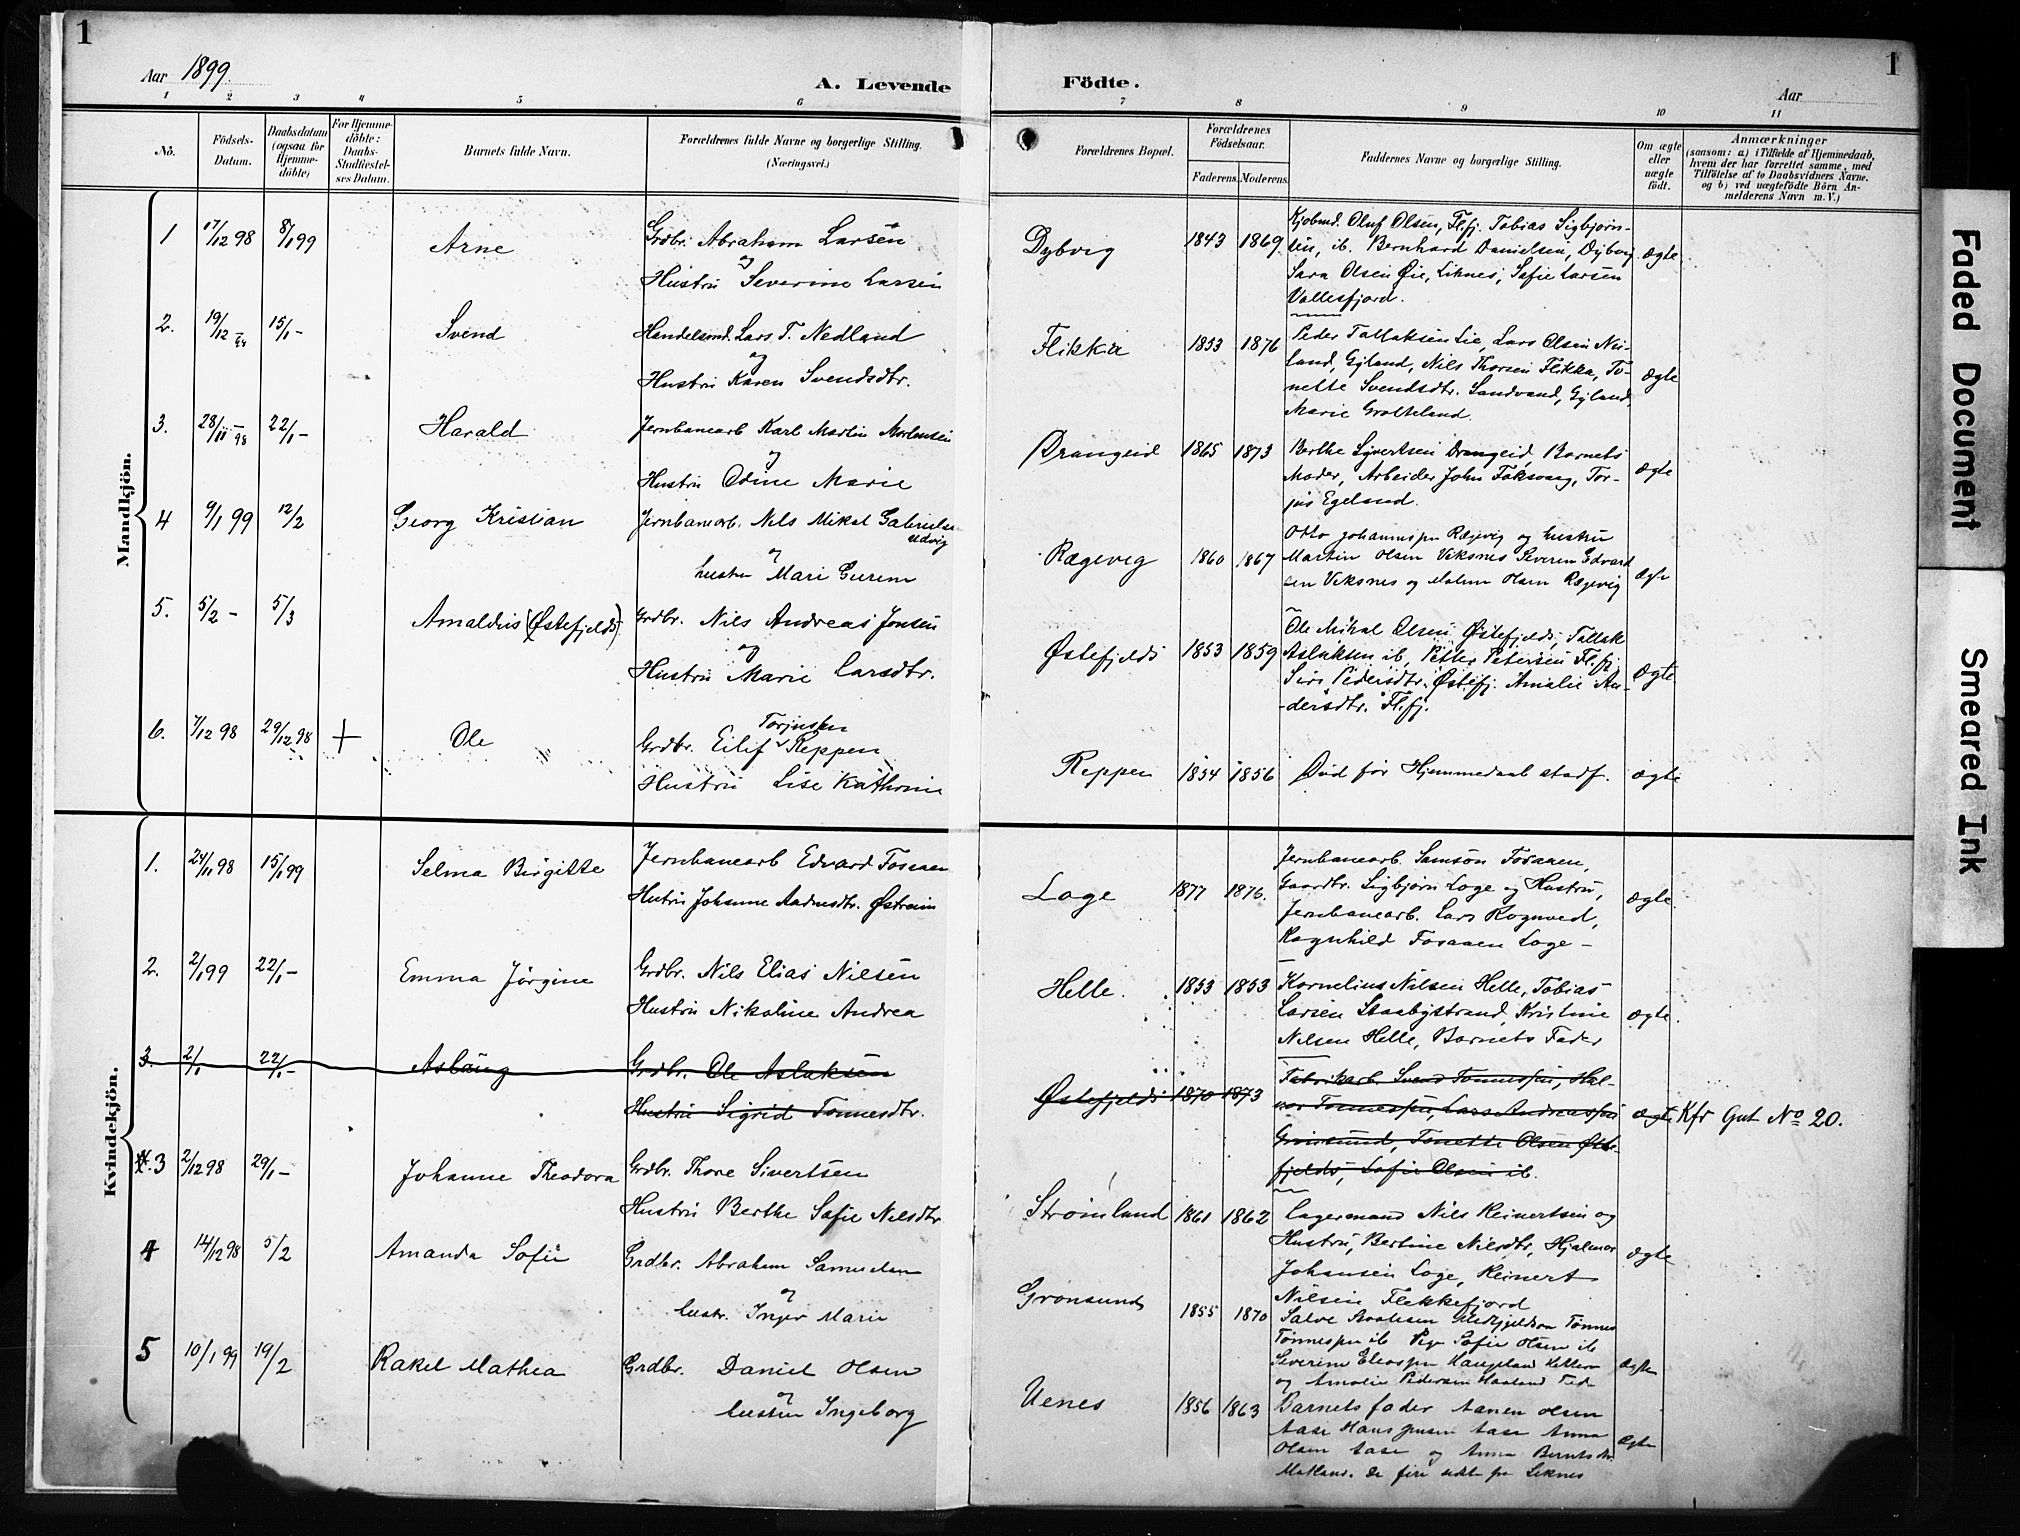 1
Aar 1899.
A. Levende
1 2 3 4 5 6
Nô.
Födsels-Datum.
Daabsdatum (ogsaa for Hjemme-döbte)
For Hjemme-döbte: Daabs-Stadfæstel-ses Datum.
Barnets fulde Navn.
Forældrenes fulde Navne og borgerlige Stilling.
(Næringsvei.)
Mandkjön.
1 17/12 98 8/1 99 Arne Grdbr. Abraham Larsen
og
Hustru Severine Larsen
2. 19/12 15/1 - Svend Handelsmd. Lars T. Nedland
og
Hustru Karen Svendsdtr.
3. 28/11 98 22/1 - Harald Jernbanearb Karl Martin Mortensen
og
Hustru Odine Marie
4 9/1 99 12/2 Georg Kristian Jernbanearb. Nils Mikal Gabrielse
Udvig
og
hustru Mari Gurine
5. 5/2 - 5/3 Arnaldus (Østefjelds) Grdbr. Nils Andreas Jonsen
og
Hustru Marie Larsdtr.
6. 7/12 98 29/12 98 + Ole Grdbr. Eilif Torjussen Reppen
Hustru Lise Kathrine
Kvindekjön.
1. 24/11 98 15/1 99 Selma Birgitte Jernbanearb Edvard Fosaaen
Hustru Johanne Aadnesdtr. Østreim
2. 2/1 99 22/1 - Emma Jørgine Grdbr. Nils Elias Nilsen
Hustru Nikoline Andrea
3. 2/1 22/1 - Aslaug Grdbr. Ole Aslaksen
Hustru Sigrid Tonnesdtr.
3 2/12 98 29/1 - Johanne Theodora Grdbr. Thore Sivertsen
Hustru Berthe Sofie Nilsdtr
4 14/12 98 5/2 Amanda Sofie Grdbr. Abraham Samuelsen
og
hustr. Inger Marie
5 10/1 99 19/2 Rakel Mathea Grdbr. Daniel Olsen
og
hustru Ingeborg
1
Födte.
Aar
7 8 9 10 11
Forældrenes Bopæl.
Forældrenes Födselsaar.
Faderens. Moderens.
Faddernes Navne og borgerlige Stilling.
Om ægte eller uægte födt.
Anmærkninger
(saasom: a) i Tilfælde af Hjemmedaab,
hvem der har forrettet samme, med
Tilföielse af to Daabsvidners Navne.
og b) ved uægtefödte Börn An-
melderens Navn m. V.)
Dybvig 1843 1869 Kjøbmd. Oluf Olsen, Fl.fj. Tobias Sigbjørn-
sen, ib. Bernhard Danielsen, Dybvig
Sara Olsen Øie, Liknes, Sofie Larsen
Vollesfjord.
ægte
Flikka 1853 1876 Peder Tallaksen Lie, Lars Olsen Ne-
land, Gyland, Nils Thorsen Flikka, To-
nette Svendsdtr. Sandvand, Gyland,
Marie Grotteland
ægte
Drangeid 1865 1873 Berthe Syvertsen Drangeid, Barnets
Moder, Arbeider John Foksvog, Tor-
jus Egeland.
ægte
Rægevig 1860 1867 Otto Johannesen Rægevig og hustru
Martin Olsen Veksnes Severin Edvard
sen Veksnes og Malene Olsen Rægevig
ægte
Østefjelds 1853 1859 Ole Mikal Olsen Østefjelds, Tallak
Aslaksen ib, Petter Petersen Fl.fj
Siri Pedersdtr. Østefj. Amalie An-
dersdtr. Fl.fj.
ægte
Reppen 1854 1856 Død før Hjemmedaab stadf. ægte
Loge 1877 1876. Jernbanearb. Samson Fosaaen,
Gaardbr. Sigbjørn Loge og Hustru,
Jernbanearb. Lars Rognved,
Ragnhild Fosaaen Loge -
ægte
Helle. 1853 1853 Kornelius Nilsen Helle, Tobias
Larsen Staabystrand, Kristine
Nilsen Helle, Barnets Fader
ægte.
Østefjelds 1870 1873 Fabrikarb. Svend Tonnessen, Hal-
vor Tonnessen, Lars Andreassen
Grønsund, Tonette Olsen Øste-
fjelds, Sofie Olsen ib.
ægte Kfr Gut No 20.
Strømland 1861 1862 Lagermand Nils Reinertsen og
Hustru, Bertine Nilsdtr, Hjalmar
Johansen Loge, Reinert
Nilsen Flekkefjord
ægte
Grønsund 1855 1870 Salve Tønnes
Tønnessen ib Sofie Olsen ib
Severine Eliassen Haugeland
og Amalie Pedersen Haaland
ægte
Uenes 1856 1863 Barnets fader Aanen Olsen
Aase Hans Jensen Aase Anna
Olsen Aase og Anna Berntsdtr
Matland. De fire sidste fra Liknes
ægte
Faded Document
Smeared Ink